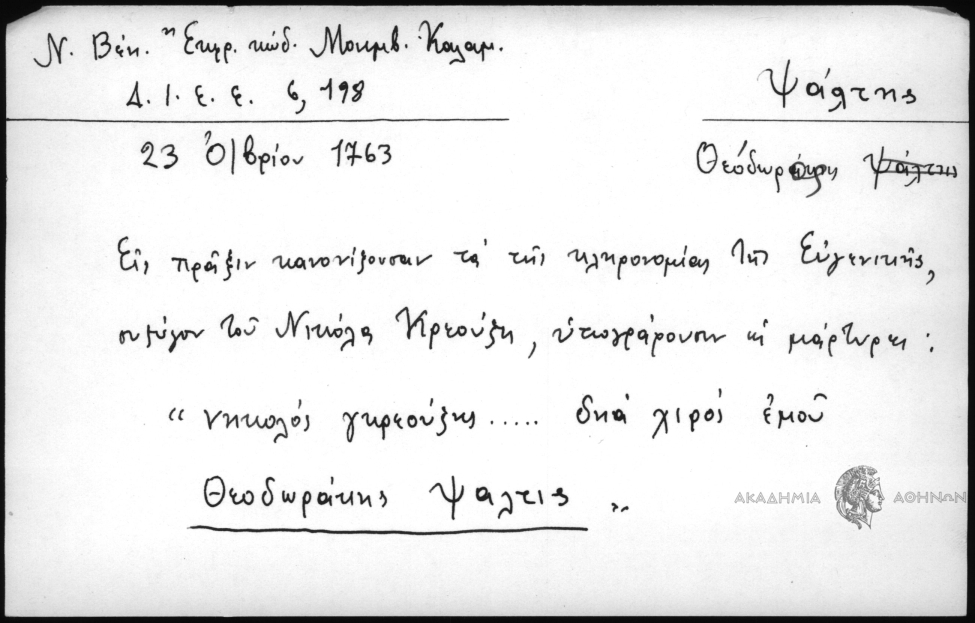 Ν. Βέη. "Εκφρ. κώδ. Μονεμβ. Καλαμ.
Δ. Ι. Ε. Ε. 6, 198
Ψάλτης
23 Ὀ/βρίου 1763
Θεόδωράκης Ψάλτης
Εἰς πρᾶξιν κανονίζουσαν τὰ τῆς κληρονομίας τῆς Εὐγενικῆς,
συζύγου τοῦ Νικόλα Κρεούζη, ὑπογράφουσιν ὡς μάρτυρες :
“ νηκολός γκρεούζης ..... δηά χιρός ἐμοῦ
Θεοδωράκης Ψαλτις ”
ΑΚΑΔΗΜΙΑ ΑΘΗΝΩΝ